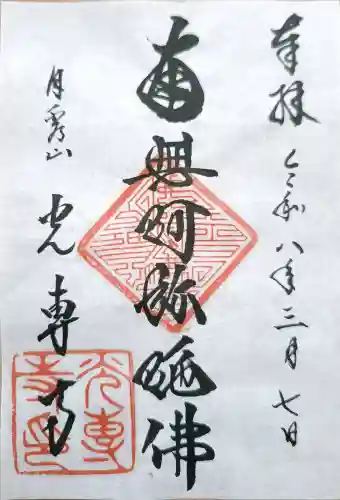 奉拝
令和八年三月七日
南無阿弥陀佛
月秀山
光専寺
光専
寺印